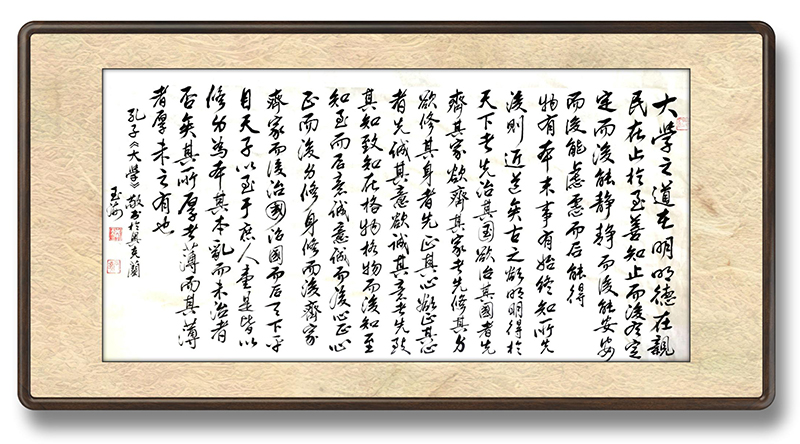 大学之道在明明德在親
民在止於至善知止而後有定
定而後能静静而後能安安
而後能慮慮而后能得
物有本末事有始终知所先
後则近道矣古之欲明明得於
天下者先治其国欲治其國者先
齊其家欲齊其家者先修其身
欲修其身者先正其心欲正其心
者先诚其意欲诚其意者先致
其知致知在格物格物而後知至
知至而后意诚意诚而後心正心
正而後身修身修而後齊家
齊家而後治國治國而后天下平
自天子以至于庶人壹是皆以
修身為本其本亂而末治者
否矣其所厚者薄而其薄
者厚未之有也
孔子《大学》敬书於